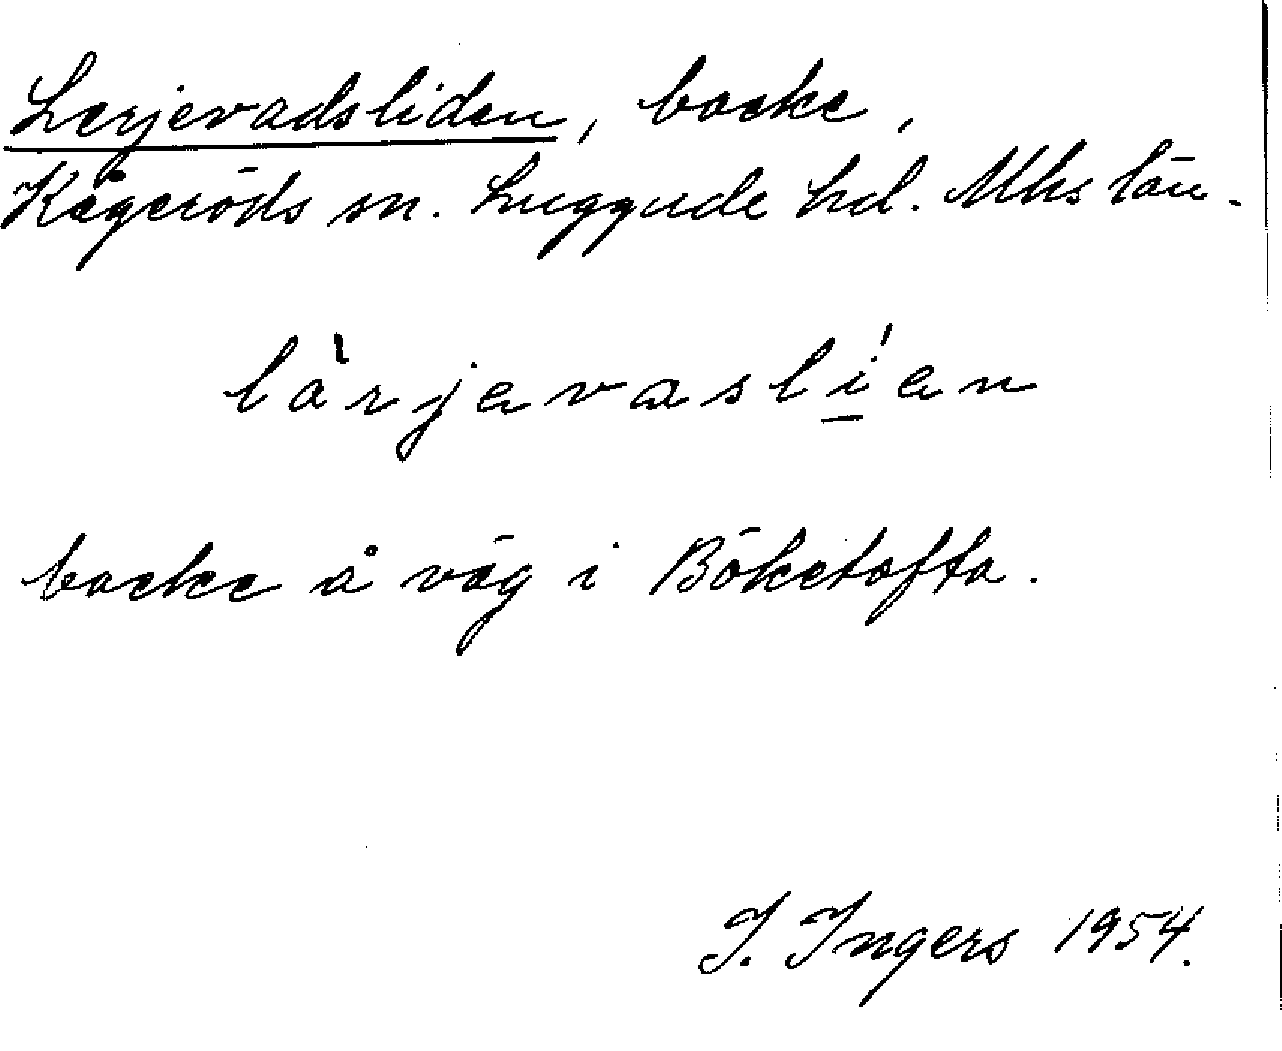 Lerjevadsliden, backe,
Kågeröds sn. Luggude hd. Mhs län.
làrjevaslíen
backe å väg i Böketofta.
I. Ingers 1954.